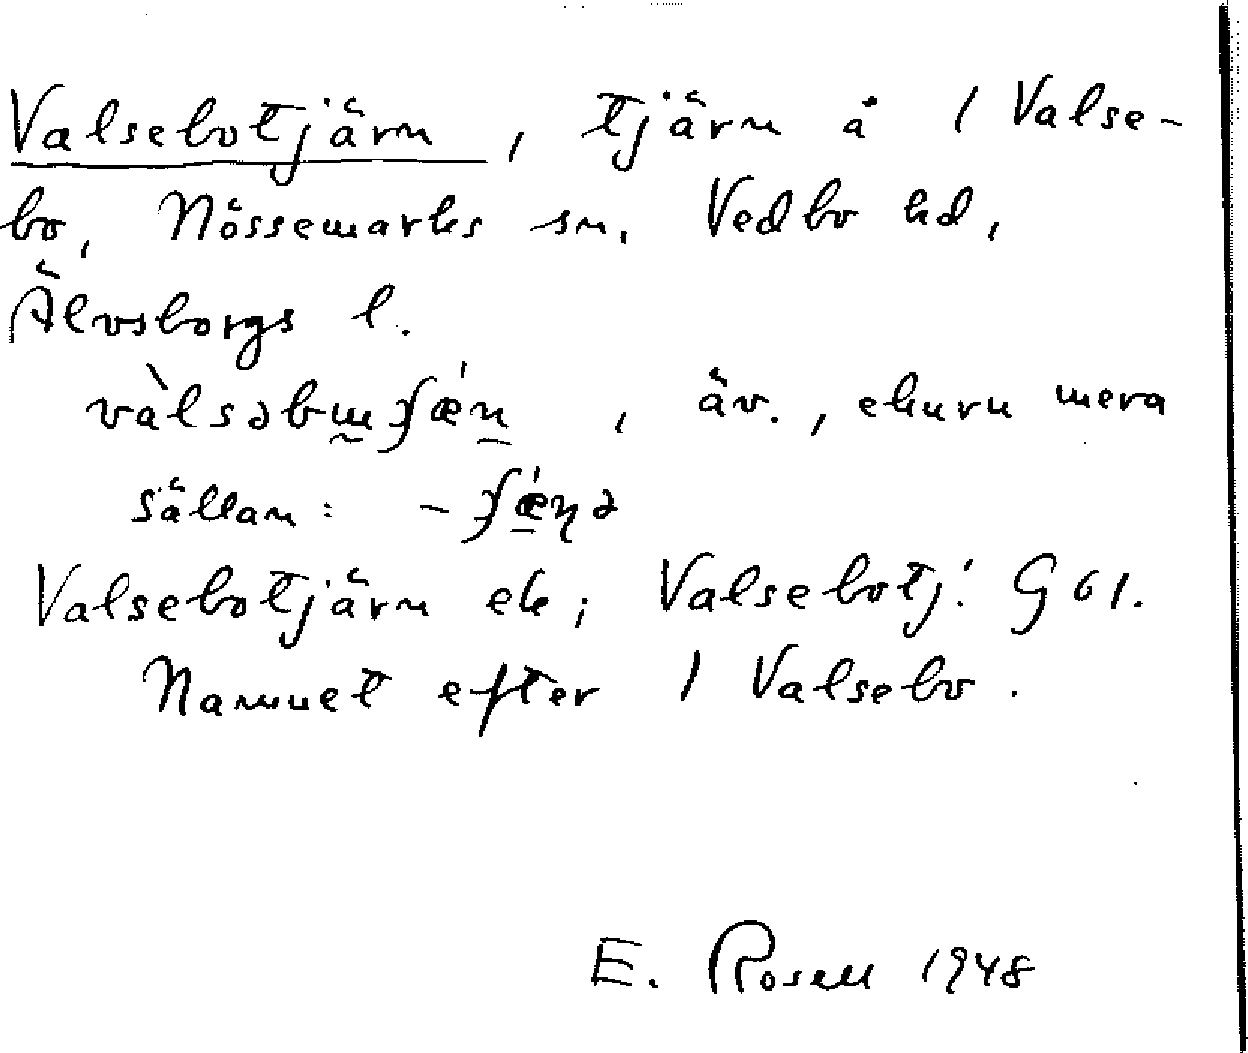 Valsebotjärn, tjärn å 1 Valse-
bo, Nössemarks sn, Vedbo hd,
Älvsborgs l.
, äv., ehuru mera
sällan:
Valsebotjärn ek; Valsebotj. G 61.
Namnet efter 1 Valsebo.
E. Rosell 1948